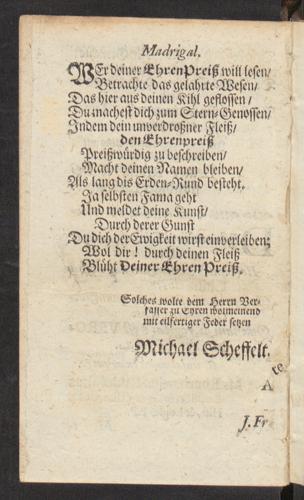 Madrigal.
WEr deiner Ehren Preiß will lesen/
Betrachte das gelahrte Wesen/
Das hier aus deinen Kihl geflossen/
Du machest dich zum Stern-Genossen/
Indem dein unverdroßner Fleiß/
den Ehrenpreiß
Preißwürdig zu beschreiben/
Macht deinen Namen bleiben/
Als lang dis Erden-Rund besteht.
Ja selbsten Fama geht
Und meldet deine Kunst/
Durch derer Gunst
Du dich der Ewigkeit wirst einverleiben;
Wol dir! durch deinen Fleiß
Blüht Deiner Ehren Preiß.
Solches wolte dem Herrn Ver-
fasser zu Ehren wolmeinend
mit eilfertiger Feder setzen
Michael Scheffelt.
te
A
J. Fr